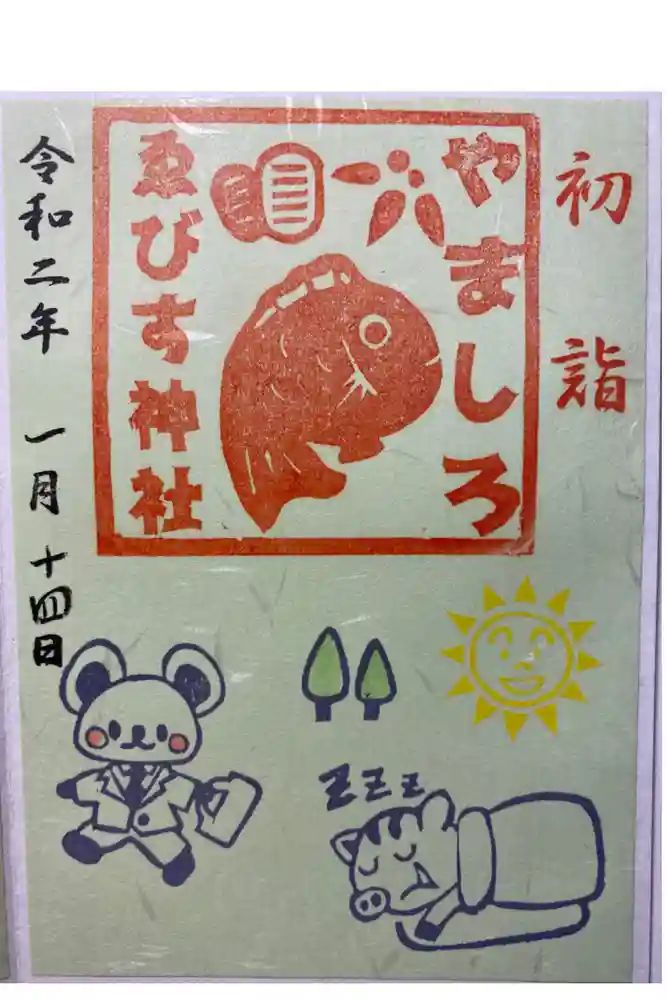 初詣
やましろ
ゑびす神社
令和二年 一月 十四日
zzz